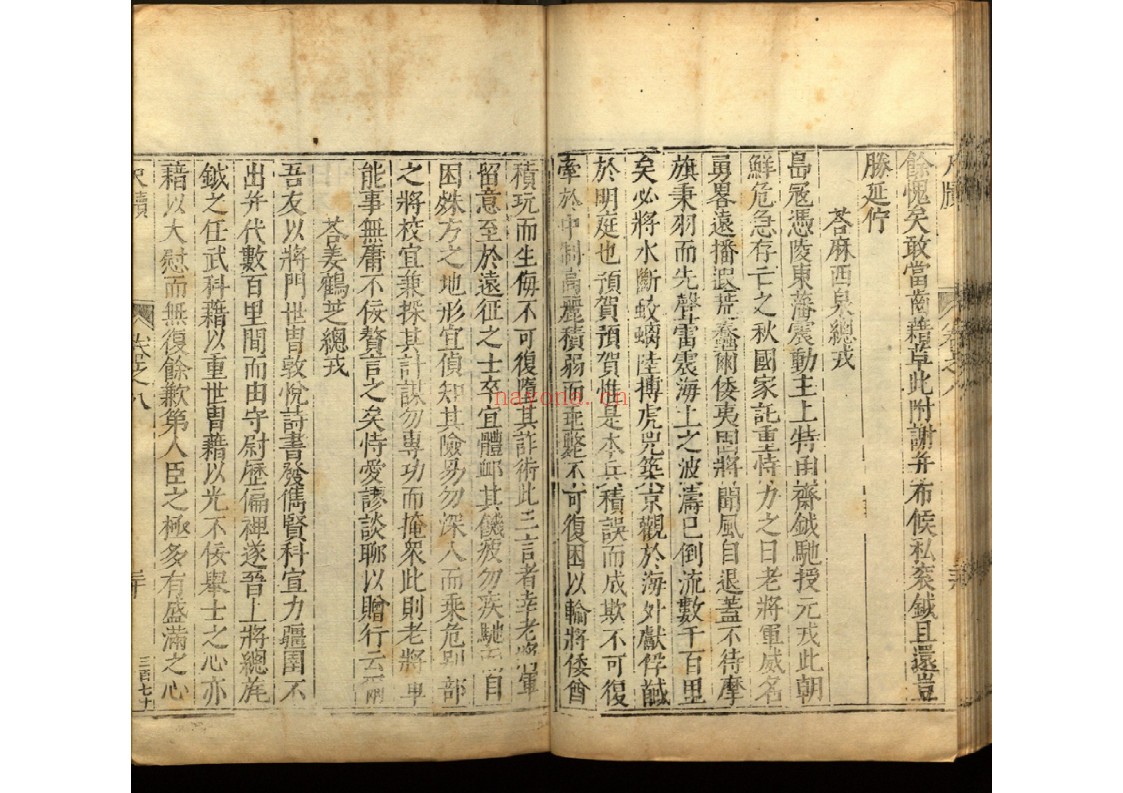 尺牘
卷之八
餘愧矣敢當齒藉草此附謝并布候私衮鉞且還豈
勝延佇
荅麻西泉總戎
島冦憑陵東藩震動主上特再齋鉞馳授元戎此朝
鮮危急存亡之秋國家託重恃力之日老將軍威名
勇畧遠播遐荒蠢爾倭夷固將聞風自退蓋不待摩
旗秉羽而先聲雷震海上之波濤已倒流數千百里
矣必將水斷蛟螭陸搏虎兕築京觀於海外獻俘馘
於明庭也預賀預賀惟是本兵積誤而成欺不可復
牽於中制高麗積弱而垂斃不可復困以輸將倭酋
積玩而生侮不可復隋其詐術此三言者幸老將軍
留意至於遠征之士卒宜體䘏其饑疲勿疾馳
自
困殊方之地形宜偵知其險易勿深入而乘危別部
之將校宜兼採其計謀勿專功而掩衆此則老將軍
能事無庸不佞贅言之矣恃愛謬談聊以贈行云爾
荅姜鶴芝總戎
吾友以將門世冑敦悅詩書發雋賢科宣力疆圉不
出弁代數百里間而由守尉歷偏裨遂晉上將總旄
鉞之任武科藉以重世冑藉以光不佞舉士之心亦
藉以大慰而無復餘歉第人臣之極多有盛滿之心
尺牘
卷之八
三十
三百七十
nayong.cn